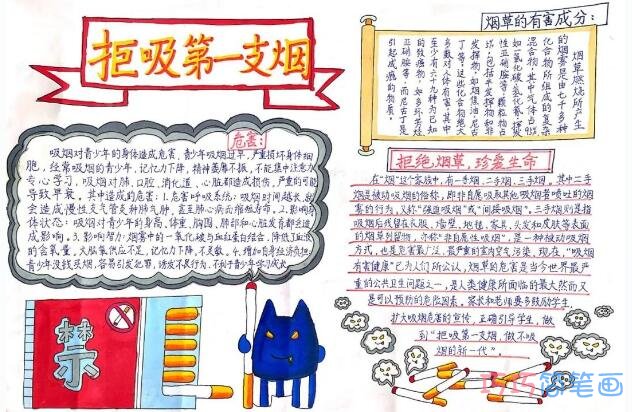 拒吸第一支烟
危害:
吸烟对青少年的身体造成危害,青少年吸烟过早,严重损坏身体细
胞,经常吸烟的青少年,记忆力下降,精神萎靡不振,不能集中注意力
专心学习,吸烟对肺,口腔,消化道,心脏都造成损伤,严重的可能
导致早衰。其中造成的危害:1.危害呼吸系统:吸烟时间越长
会造成慢性支气管炎肺气肿,甚至肺心病而缩短寿命。2.影响身
体状态:吸烟对青少年的身高,体重,胸围,肺部和心脏发育都造成
成影响。3.影响智力:烟雾中的一氧化碳与血红蛋白结合,降低了血液
的含氧量,大脑氧供应不足,记忆力下降,不灵敏。4.增加自身经济负担:
青少年没钱买烟,容易引发犯罪,诱发不良行为,不利于青少年学习成长
禁
烟草的有害成分:
烟草燃烧所产生
的烟雾是由七千多种
化合物所组成的复杂
混合物,其中气体占95%
如一氧化碳,氢化氰,挥发
性亚硝胺等,颗粒物占
5%,包括半挥发物和非
发挥物,如烟焦油,尼古
丁等,这些化合物绝大
多数对人体有害,其中
至少有六十九种为已知
的致癌物,如多环芳烃
亚硝胺等,而尼古丁是
引起成瘾的物质。
拒绝烟草,珍爱生命
在"烟"这个家族中,有一手烟,二手烟,三手烟,其中二手
烟是被动吸烟的俗称,即非自愿吸取其他吸烟者喷吐的烟
雾的行为,又称"强迫吸烟"或"间接吸烟"。三手烟则是指
吸烟后残留在衣服、墙壁,地毯,家具,头发和皮肤等表面
的烟草残留物,亦称"非自愿性吸烟",是一种被动吸烟
方式,也是危害最广泛,最严重的室内空气污染,现在,"吸烟
有害健康"已为人们所公认,烟草的危害是当今世界最严
重的公共卫生问题之一,是人类健康所面临的最大然而又
是可以预防的危险因素,家长和老师要多鼓励学生,
扩大吸烟危害的宣传,正确引导学生,做
到"拒吸第一支烟,做不吸
烟的新一代"。
巧巧简笔画